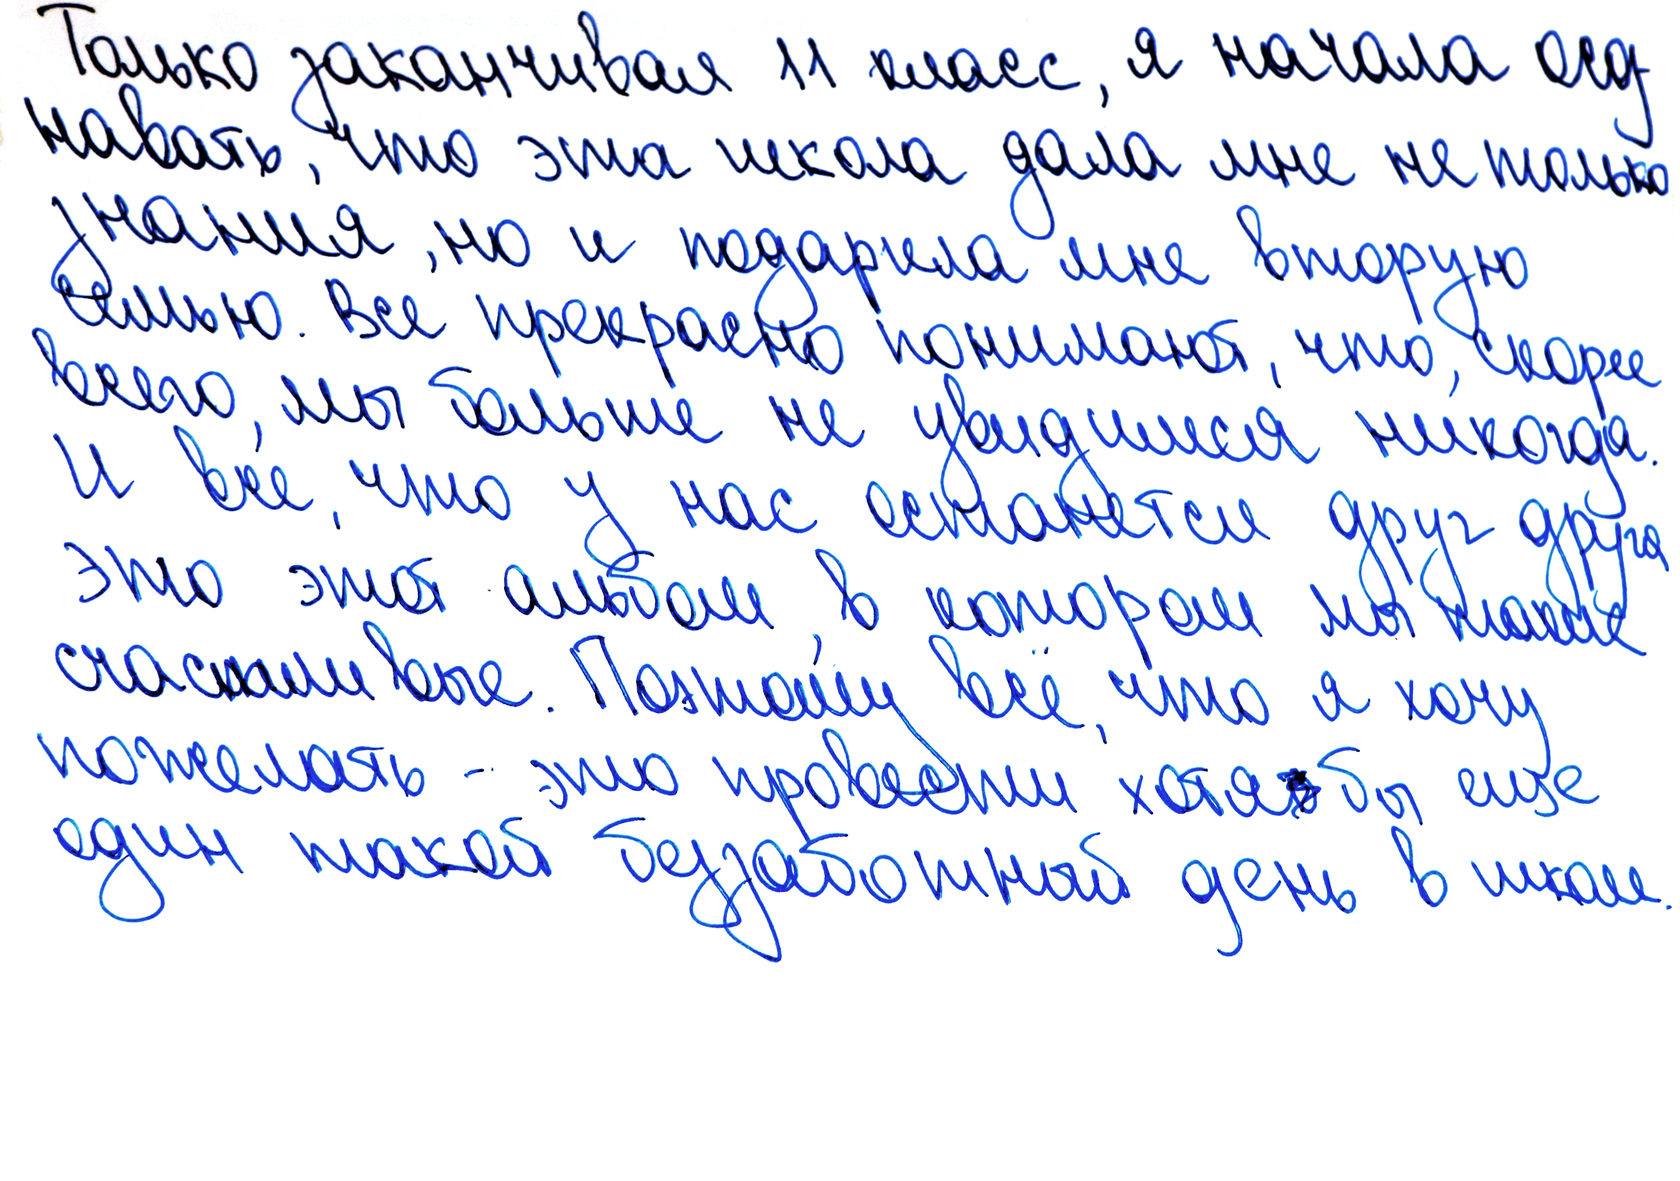 Только заканчивая 11 класс, я начала осоз
навать, что эта школа дала мне не только
знания, но и подарила мне вторую
семью. Все прекрасно понимают, что, скорее
всего, мы больше не увидимся никогда.
И всё, что у нас останется друг друга
это этот альбом, в котором мы такие
счастливые. Поэтому всё, что я хочу
пожелать - это провести хотя бы еще
один такой беззаботный день в школе.